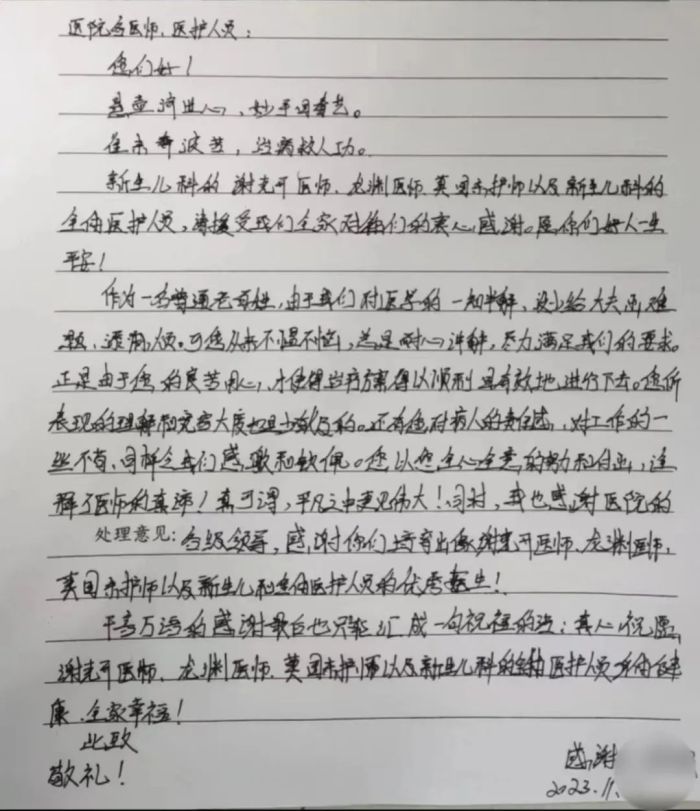 医院各医师、医护人员：
您们好！
悬壶济世心，妙手回春艺。
在未奔波苦，治病救人功。
新生儿科的谢尧开医师、龙渊医师、莫国未护师以及新生儿科的
全体医护人员，请接受我们全家对您们的衷心感谢。愿你们好人一生
平安！
作为一名普通老百姓，由于我们对医学的一知半解，没少给大夫出难
题、添麻烦。可您从来不愠不恼，总是耐心讲解，尽力满足我们的要求。
正是由于您的良苦用心，才使得治疗方案得以顺利且有效地进行下去。您所
表现的理解和宽容大度也是少数及的。还有您对病人的责任感，对工作的一
丝不苟，同样令我们感激和钦佩。您以您全心全意的努力和付出，诠
释了医师的真谛！真可谓，平凡之中更见伟大！同时，我也感谢医院的
处理意见：各级领导，感谢你们培育出像谢尧开医师、龙渊医师，
莫国未护师以及新生儿科全体医护人员的优秀医生！
千言万语的感谢最后也只能汇成一句祝福的话：真心祝愿，
谢尧开医师、龙渊医师、莫国未护师以及新生儿科的全体医护人员身体健
康、全家幸福！
此致
敬礼！
感谢
2023.11.